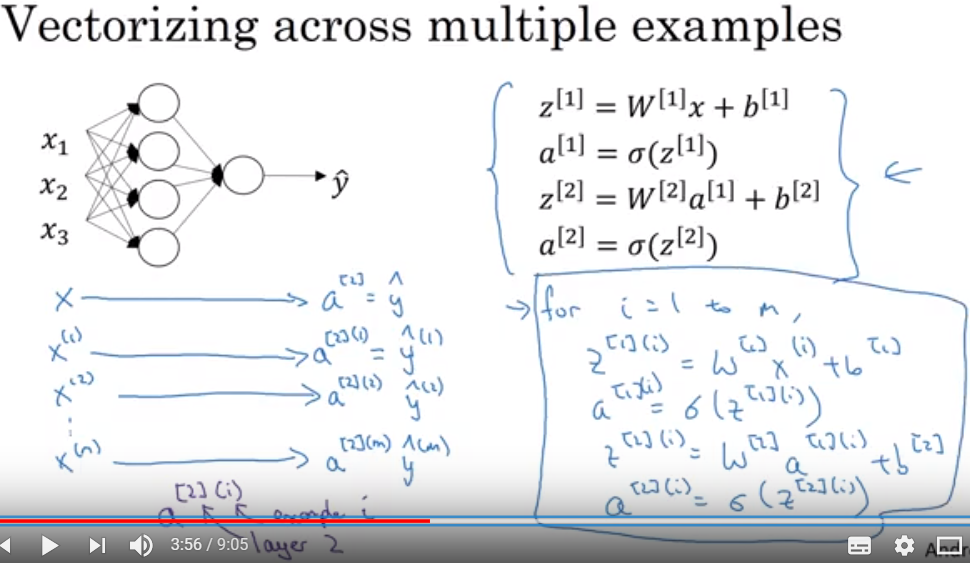 Vectorizing across multiple examples
x₁
x₂
x₃
ŷ
z^[1] = W^[1]x + b^[1]
a^[1] = σ(z^[1])
z^[2] = W^[2]a^[1] + b^[2]
a^[2] = σ(z^[2])
x → a^[2] = ŷ
x^(1) → a^[2](1) = ŷ^(1)
x^(2) → a^[2](2) ŷ^(2)
⋮
x^(m) → a^[2](m) ŷ^(m)
a^[2](i)
example i
layer 2
→ for i = 1 to m,
z^[1](i) = W^[1] x^(i) + b^[1]
a^[1](i) = σ(z^[1](i))
z^[2](i) = W^[2] a^[1](i) + b^[2]
a^[2](i) = σ(z^[2](i))
3:56 / 9:05